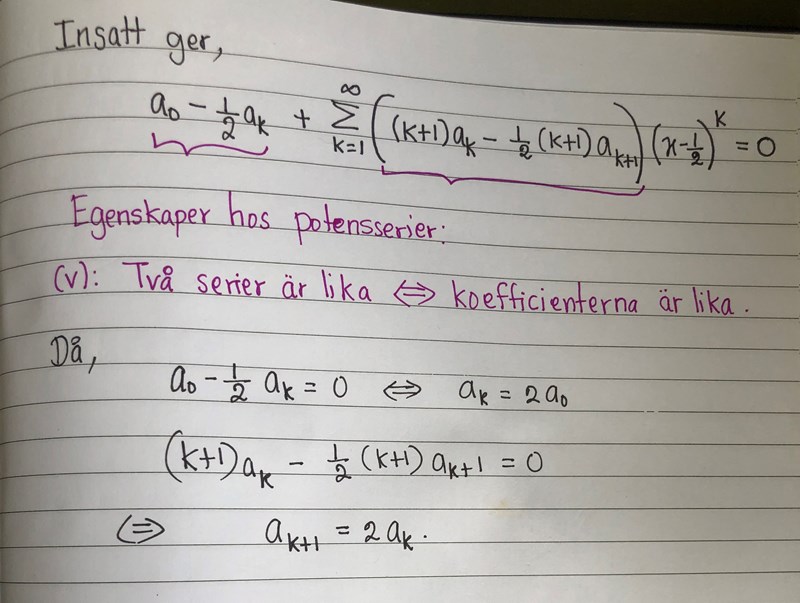 Insatt ger,
a₀ - 1/2 aₖ + ∑_{k=1}^{∞} ((k+1)aₖ - 1/2 (k+1) aₖ₊₁) (x-1/2)^k = 0
Egenskaper hos potensserier:
(v): Två serier är lika ⇔ koefficienterna är lika.
Då,
a₀ - 1/2 aₖ = 0 ⇔ aₖ = 2a₀
(k+1)aₖ - 1/2 (k+1) aₖ₊₁ = 0
⇔ aₖ₊₁ = 2aₖ.